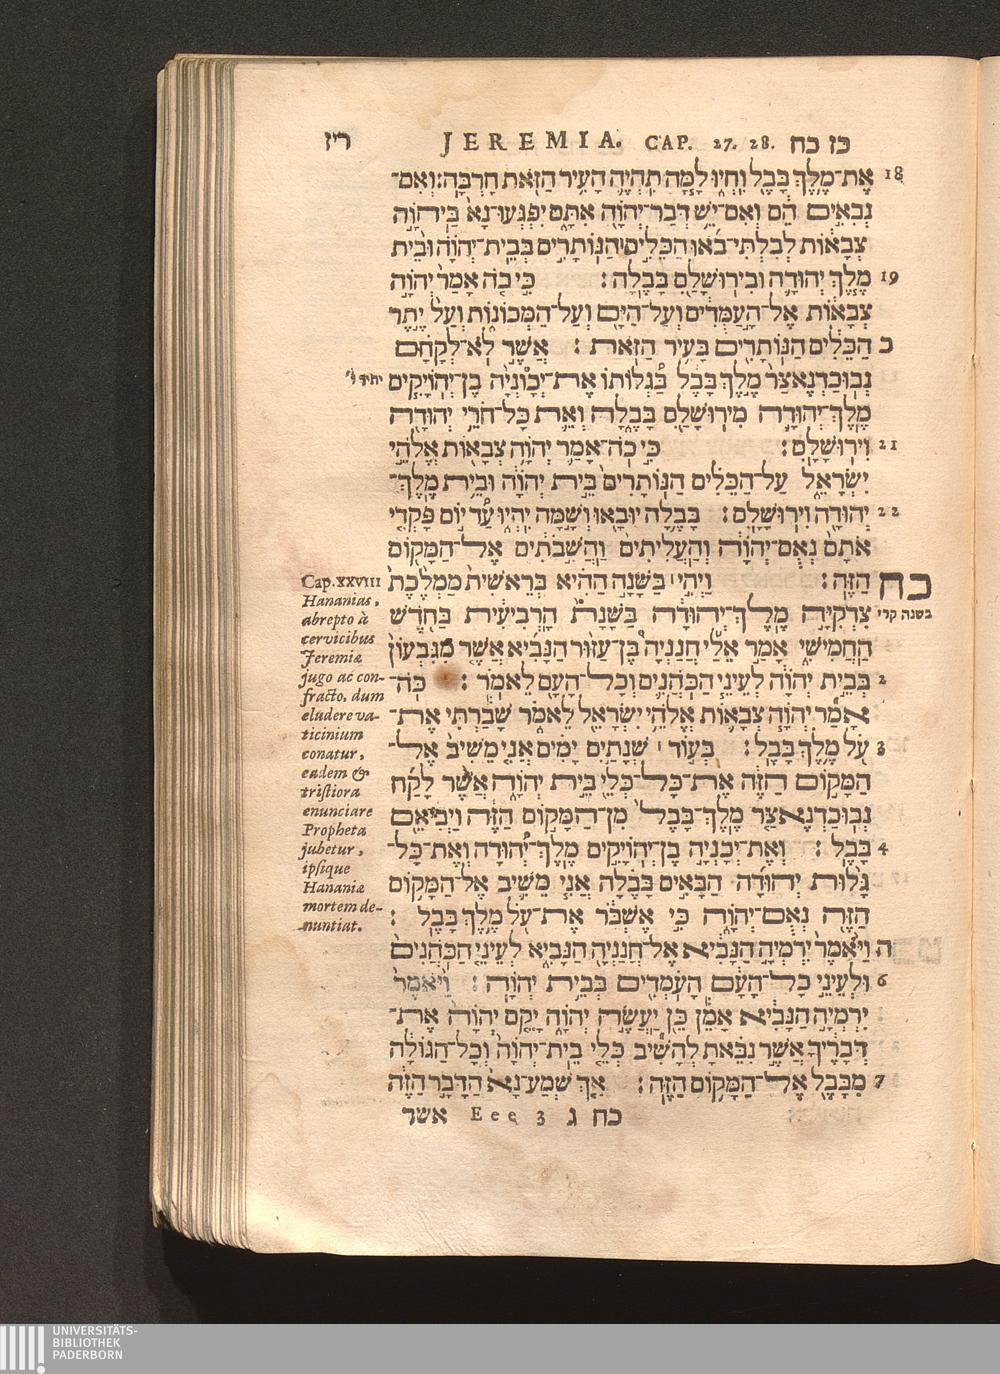 ריז JEREMIA. CAP. 27. 28. כז כח
18 אֶת־מֶלֶךְ בָּבֶל וִחְיוּ לָמָּה תִהְיֶה הָעִיר הַזֹּאת חָרְבָּה׃ וְאִם־
נְבִאִים הֵם וְאִם־יֵשׁ דְּבַר־יְהֹוָה אִתָּם יִפְגְּעוּ־נָא בַּיהֹוָה
צְבָאוֹת לְבִלְתִּי־בֹאוּ הַכֵּלִים הַנּוֹתָרִים בְּבֵית־יְהֹוָה וּבֵית
19 מֶלֶךְ יְהוּדָה וּבִירוּשָׁלִַם בָּבֶלָה׃ כִּי כֹה אָמַר יְהֹוָה
צְבָאוֹת אֶל־הָעַמֻּדִים וְעַל־הַיָּם וְעַל־הַמְּכוֹנוֹת וְעַל יֶתֶר
כ הַכֵּלִים הַנּוֹתָרִים בָּעִיר הַזֹּאת׃ אֲשֶׁר לֹא־לְקָחָם
נְבוּכַדְנֶאצַּר מֶלֶךְ בָּבֶל בַּגְלוֹתוֹ אֶת־יְכָוֹנְיָה בֶן־יְהוֹיָקִים יתיר ו'
מֶלֶךְ־יְהוּדָה מִירוּשָׁלִַם בָּבֶלָה וְאֵת כָּל־חֹרֵי יְהוּדָה
21 וִירוּשָׁלִָם׃ כִּי כֹה־אָמַר יְהֹוָה צְבָאוֹת אֱלֹהֵי
יִשְׂרָאֵל עַל־הַכֵּלִים הַנּוֹתָרִים בֵּית יְהֹוָה וּבֵית מֶלֶךְ־
22 יְהוּדָה וִירוּשָׁלִָם׃ בָּבֶלָה יוּבָאוּ וְשָׁמָּה יִהְיוּ עַד יוֹם פָּקְדִי
אֹתָם נְאֻם־יְהֹוָה וְהַעֲלִיתִים וַהֲשִׁבֹתִים אֶל־הַמָּקוֹם
כח הַזֶּה׃ וַיְהִי בַּשָּׁנָה הַהִיא בְּרֵאשִׁית מַמְלֶכֶת
בשנה קרי צִדְקִיָּה מֶלֶךְ־יְהוּדָה בַּשְּׁנַת הָרְבִיעִית בַּחֹדֶשׁ
הַחֲמִישִׁי אָמַר אֵלַי חֲנַנְיָה בֶן־עַזּוּר הַנָּבִיא אֲשֶׁר מִגִּבְעוֹן
2 בְּבֵית יְהֹוָה לְעֵינֵי הַכֹּהֲנִים וְכָל־הָעָם לֵאמֹר׃ כֹּה־
אָמַר יְהֹוָה צְבָאוֹת אֱלֹהֵי יִשְׂרָאֵל לֵאמֹר שָׁבַרְתִּי אֶת־
3 עֹל מֶלֶךְ בָּבֶל׃ בְּעוֹד ׀ שְׁנָתַיִם יָמִים אֲנִי מֵשִׁיב אֶל־
הַמָּקוֹם הַזֶּה אֶת־כָּל־כְּלֵי בֵּית יְהֹוָה אֲשֶׁר לָקַח
נְבוּכַדְנֶאצַּר מֶלֶךְ־בָּבֶל מִן־הַמָּקוֹם הַזֶּה וַיְבִיאֵם
4 בָּבֶל׃ וְאֶת־יְכָנְיָה בֶן־יְהוֹיָקִים מֶלֶךְ־יְהוּדָה וְאֶת־כָּל־
גָּלוּת יְהוּדָה הַבָּאִים בָּבֶלָה אֲנִי מֵשִׁיב אֶל־הַמָּקוֹם
הַזֶּה נְאֻם־יְהֹוָה כִּי אֶשְׁבֹּר אֶת־עֹל מֶלֶךְ בָּבֶל׃
ה וַיֹּאמֶר יִרְמְיָה הַנָּבִיא אֶל־חֲנַנְיָה הַנָּבִיא לְעֵינֵי הַכֹּהֲנִים
6 וּלְעֵינֵי כָל־הָעָם הָעֹמְדִים בְּבֵית יְהֹוָה׃ וַיֹּאמֶר
יִרְמְיָה הַנָּבִיא אָמֵן כֵּן יַעֲשֶׂה יְהֹוָה יָקֵם יְהֹוָה אֶת־
דְּבָרֶיךָ אֲשֶׁר נִבֵּאתָ לְהָשִׁיב כְּלֵי בֵית־יְהֹוָה וְכָל־הַגּוֹלָה
7 מִבָּבֶל אֶל־הַמָּקוֹם הַזֶּה׃ אַךְ שְׁמַע־נָא הַדָּבָר הַזֶּה
כח ג Eee 3 אשר
Cap. XXVIII
Hananias,
abrepto à
cervicibus
Jeremiæ
jugo ac con-
fracto, dum
eludere va-
ticinium
conatur,
eadem &
tristiora
enunciare
Propheta
jubetur,
ipsique
Hananiæ
mortem de-
nuntiat.
UNIVERSITÄTS-
BIBLIOTHEK
PADERBORN